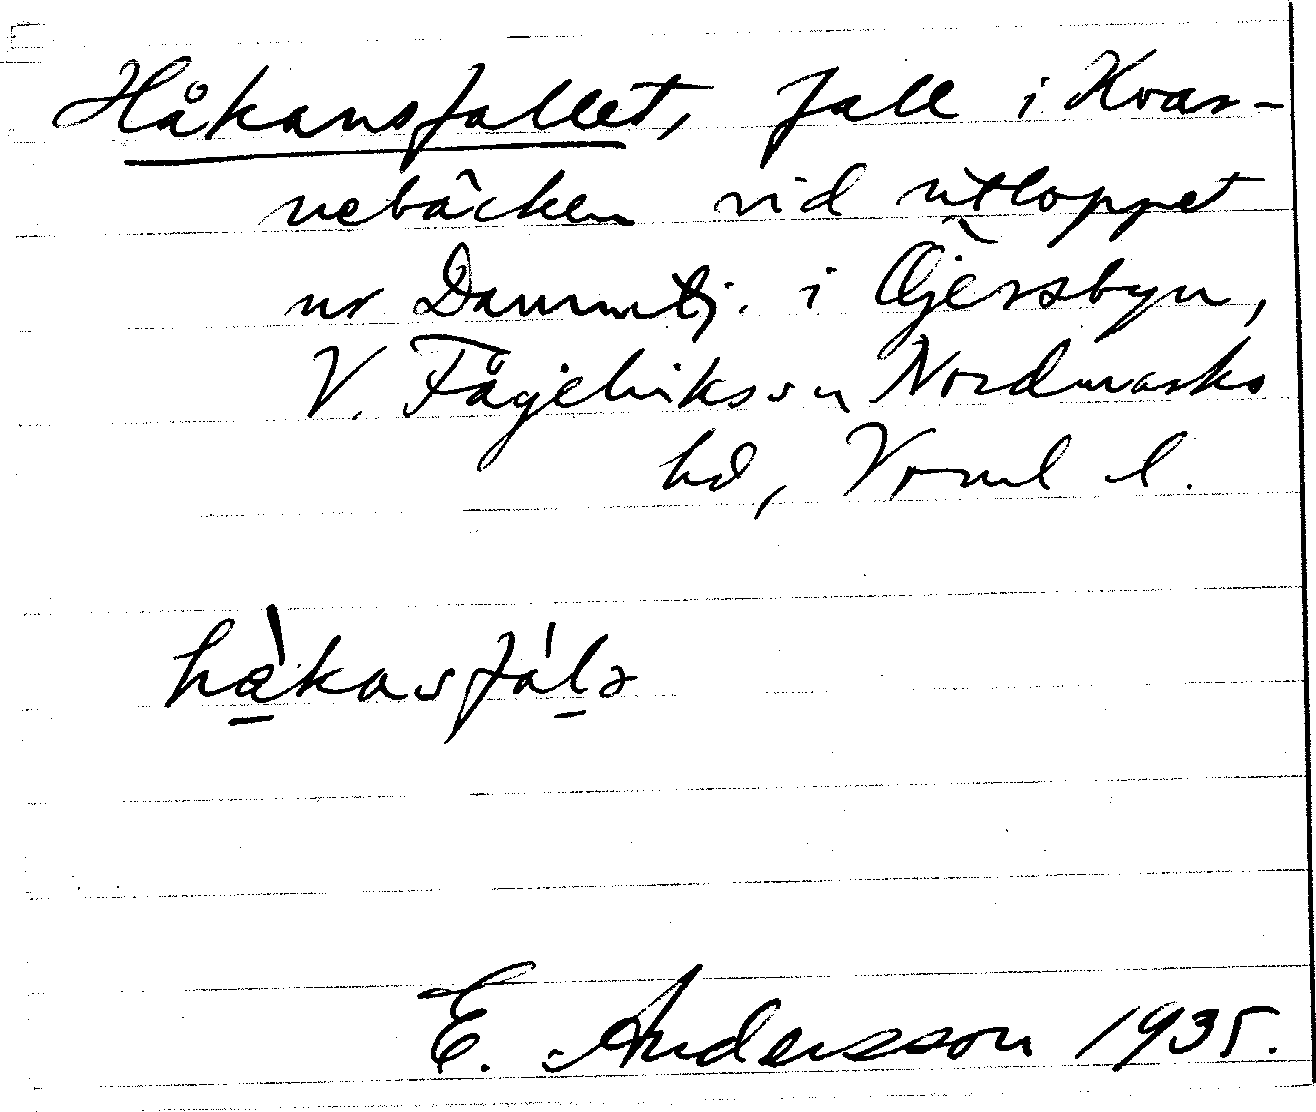 Håkansfallet, fall i Kvar-
nebäcken vid utloppet
ur Dammtj. i Öjersbyn,
V. Fågelviks sn Nordmarks
hd, Värml l.
håkasfálə
E. Andersson 1935.